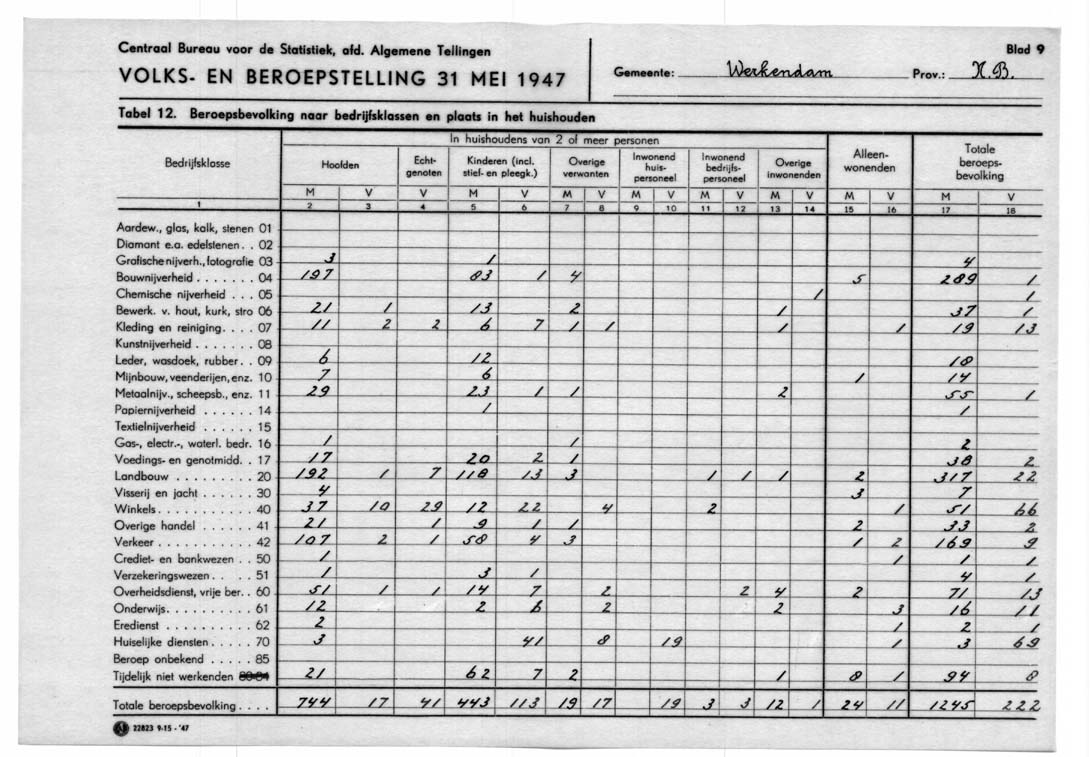 Centraal Bureau voor de Statistiek, afd. Algemene Tellingen
VOLKS- EN BEROEPSTELLING 31 MEI 1947
Gemeente: Werkendam Prov.: N.B.
Blad 9
Tabel 12. Beroepsbevolking naar bedrijfsklassen en plaats in het huishouden
In huishoudens van 2 of meer personen
Bedrijfsklasse Hoofden Echt-genoten Kinderen (incl. stief- en pleegk.) Overige verwanten Inwonend huis-personeel Inwonend bedrijfs-personeel Overige inwonenden Alleen-wonenden Totale beroeps-bevolking
M V V M V M V M V M V M V M V M V
1 2 3 4 5 6 7 8 9 10 11 12 13 14 15 16 17 18
Aardew., glas, kalk, stenen 01
Diamant e.a. edelstenen . . 02
Grafische nijverh., fotografie 03 3 1 4
Bouwnijverheid . . . . . . . 04 197 83 1 4 5 289 1
Chemische nijverheid . . . 05 1 1
Bewerk. v. hout, kurk, stro 06 21 1 13 2 1 37 1
Kleding en reiniging. . . . 07 11 2 2 6 7 1 1 1 1 19 13
Kunstnijverheid . . . . . . . 08
Leder, wasdoek, rubber. . 09 6 12 18
Mijnbouw, veenderijen, enz. 10 7 6 1 14
Metaalnijv., scheepsb., enz. 11 29 23 1 1 2 55 1
Papiernijverheid . . . . . . 14 1 1
Textielnijverheid . . . . . . 15
Gas-, electr.-, waterl. bedr. 16 1 1 2
Voedings- en genotmidd. . 17 17 20 2 1 38 2
Landbouw . . . . . . . . . 20 192 1 7 118 13 3 1 1 1 2 317 22
Visserij en jacht . . . . . . 30 4 3 7
Winkels . . . . . . . . . . . 40 37 10 29 12 22 4 2 1 51 66
Overige handel . . . . . . 41 21 1 9 1 1 2 33 2
Verkeer . . . . . . . . . . . 42 107 2 1 58 4 3 1 2 169 9
Crediet- en bankwezen . . 50 1 1 1 1
Verzekeringswezen . . . . 51 1 3 1 4 1
Overheidsdienst, vrije ber. . 60 51 1 1 14 7 2 2 4 2 71 13
Onderwijs. . . . . . . . . . 61 12 2 6 2 2 3 16 11
Eredienst . . . . . . . . . . 62 2 1 2 1
Huiselijke diensten . . . . . 70 3 41 8 19 1 3 69
Beroep onbekend . . . . . 85
Tijdelijk niet werkenden 80-84 21 62 7 2 1 8 1 94 8
Totale beroepsbevolking . . . . 744 17 41 443 113 19 17 19 3 3 12 1 24 11 1245 222
22823 9-15 - '47